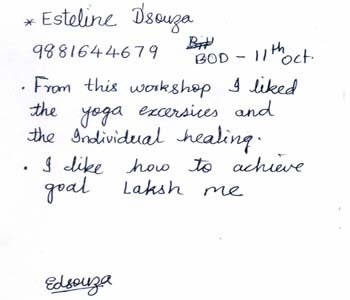 * Esteline D'souza
9881644679 BOD - 11th Oct.
• From this workshop I liked
the yoga excersices and
the Individual healing.
• I like how to achieve
goal Laksh me
Edsouza